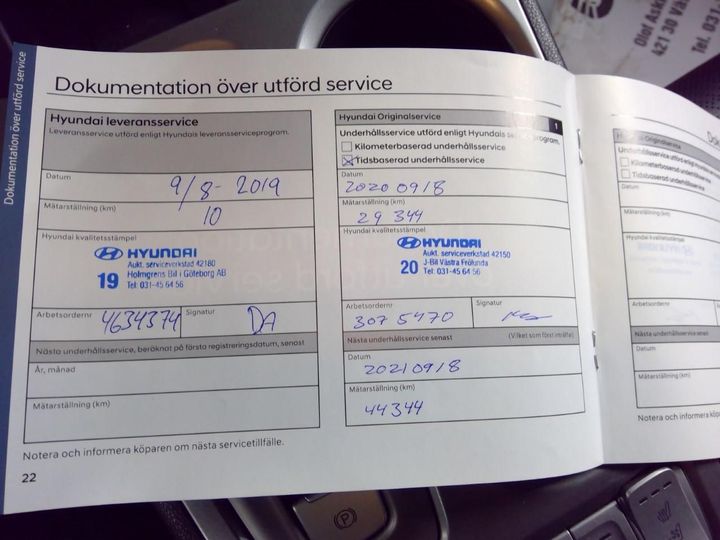 Dokumentation över utförd service
Dokumentation över utförd service
Hyundai leveransservice
Leveransservice utförd enligt Hyundais leveransserviceprogram.
Datum
9/8-2019
Mätarställning (km)
10
Hyundai kvalitetsstämpel
HYUNDAI
Aukt. serviceverkstad 42180
19 Holmgrens Bil i Göteborg AB
Tel: 031-45 64 56
Arbetsordernr
4634374
Signatur
DA
Nästa underhållsservice, beräknat på första registreringsdatum, senast
År, månad
Mätarställning (km)
Notera och informera köparen om nästa servicetillfälle.
22
Hyundai Originalservice
1
Underhållsservice utförd enligt Hyundais serviceprogram.
Kilometerbaserad underhållsservice
Tidsbaserad underhållsservice
Datum
20200918
Mätarställning (km)
29 344
Hyundai kvalitetsstämpel
HYUNDAI
Aukt. serviceverkstad 42150
20 J-Bil Västra Frölunda
Tel: 031-45 64 56
Arbetsordernr
3075470
Signatur
Nästa underhållsservice senast
(Vilket som först inträffar)
Datum
20210918
Mätarställning (km)
44344
Hyundai Originalservice
Underhållsservice utförd enligt
Kilometerbaserad underhållsservice
Tidsbaserad underhållsservice
Datum
Mätarställning (km)
Hyundai kvalitetsstämpel
Arbetsordernr
Nästa underhållsservice
Datum
Mätarställning (km)
Notera och informera k
Olof Ask
421 30 Väs
Tel. 031